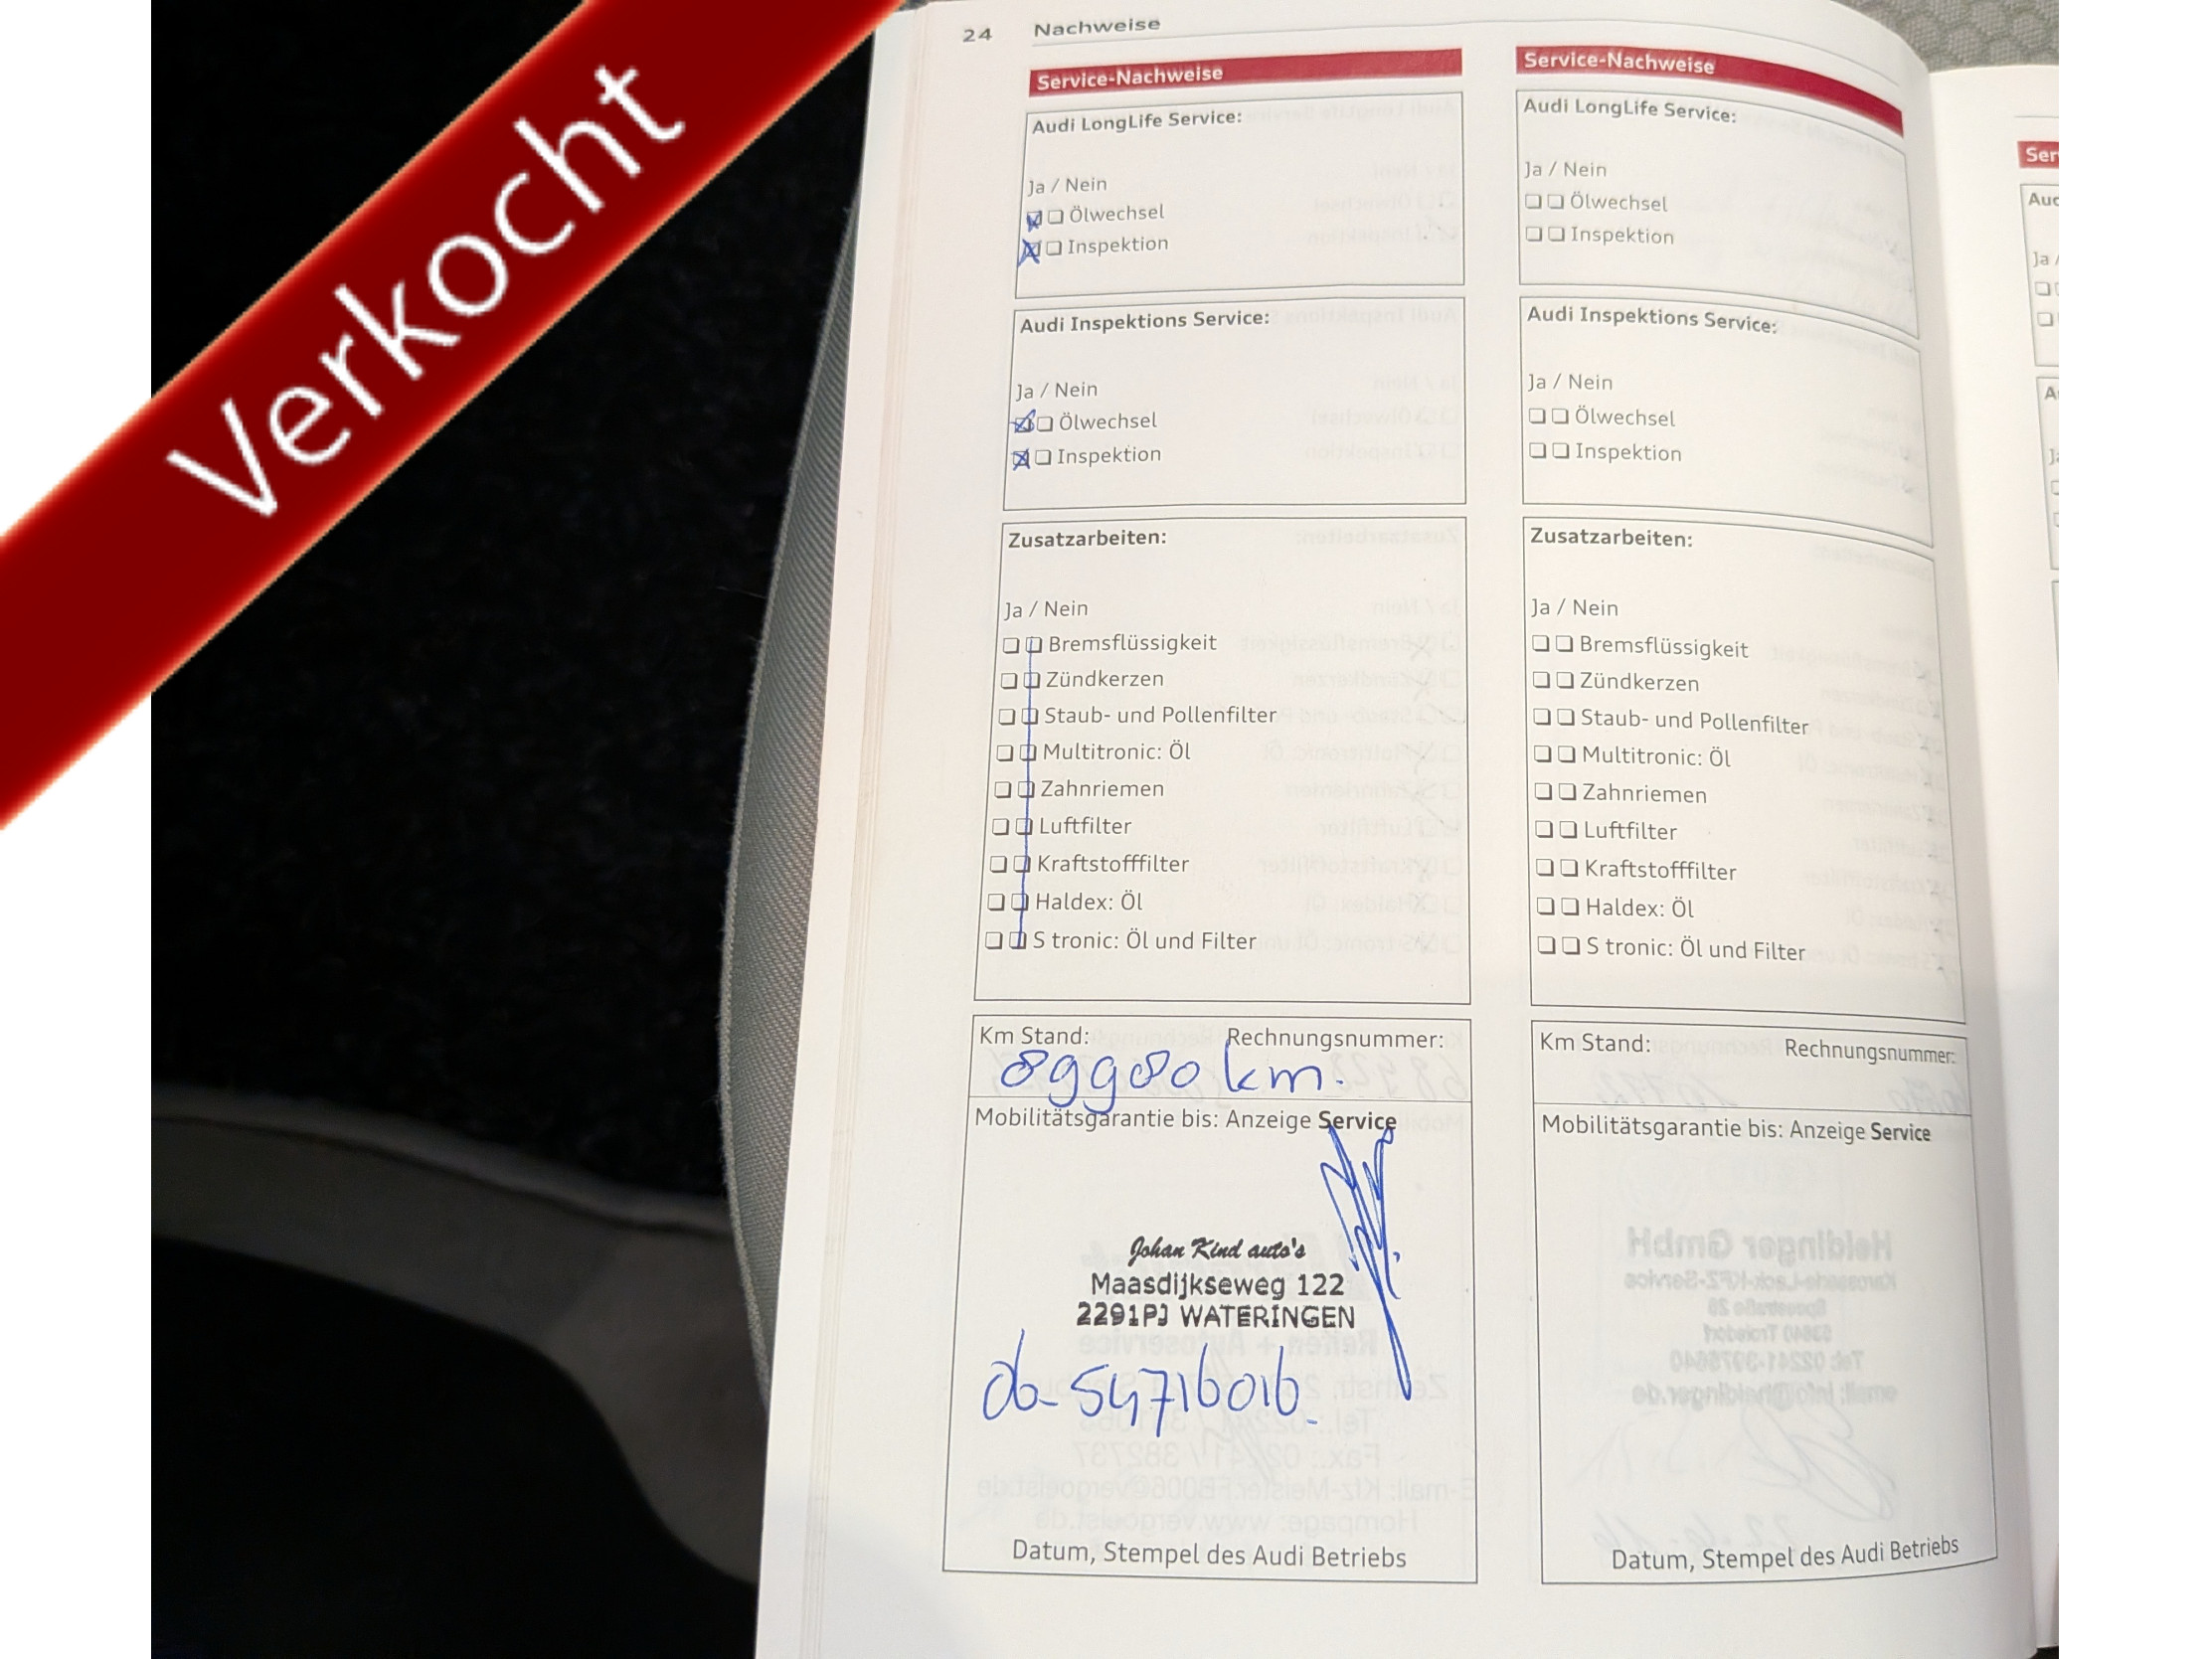 Verkocht
24 Nachweise
Service-Nachweise
Audi LongLife Service:
Ja / Nein
Ölwechsel
Inspektion
Audi Inspektions Service:
Ja / Nein
Ölwechsel
Inspektion
Zusatzarbeiten:
Ja / Nein
Bremsflüssigkeit
Zündkerzen
Staub- und Pollenfilter
Multitronic: Öl
Zahnriemen
Luftfilter
Kraftstofffilter
Haldex: Öl
S tronic: Öl und Filter
Km Stand: Rechnungsnummer:
89980 km.
Mobilitätsgarantie bis: Anzeige Service
Johan Kind auto's
Maasdijkseweg 122
2291PJ WATERINGEN
06-54716016.
Datum, Stempel des Audi Betriebs
Service-Nachweise
Audi LongLife Service:
Ja / Nein
Ölwechsel
Inspektion
Audi Inspektions Service:
Ja / Nein
Ölwechsel
Inspektion
Zusatzarbeiten:
Ja / Nein
Bremsflüssigkeit
Zündkerzen
Staub- und Pollenfilter
Multitronic: Öl
Zahnriemen
Luftfilter
Kraftstofffilter
Haldex: Öl
S tronic: Öl und Filter
Km Stand: Rechnungsnummer:
Mobilitätsgarantie bis: Anzeige Service
Datum, Stempel des Audi Betriebs